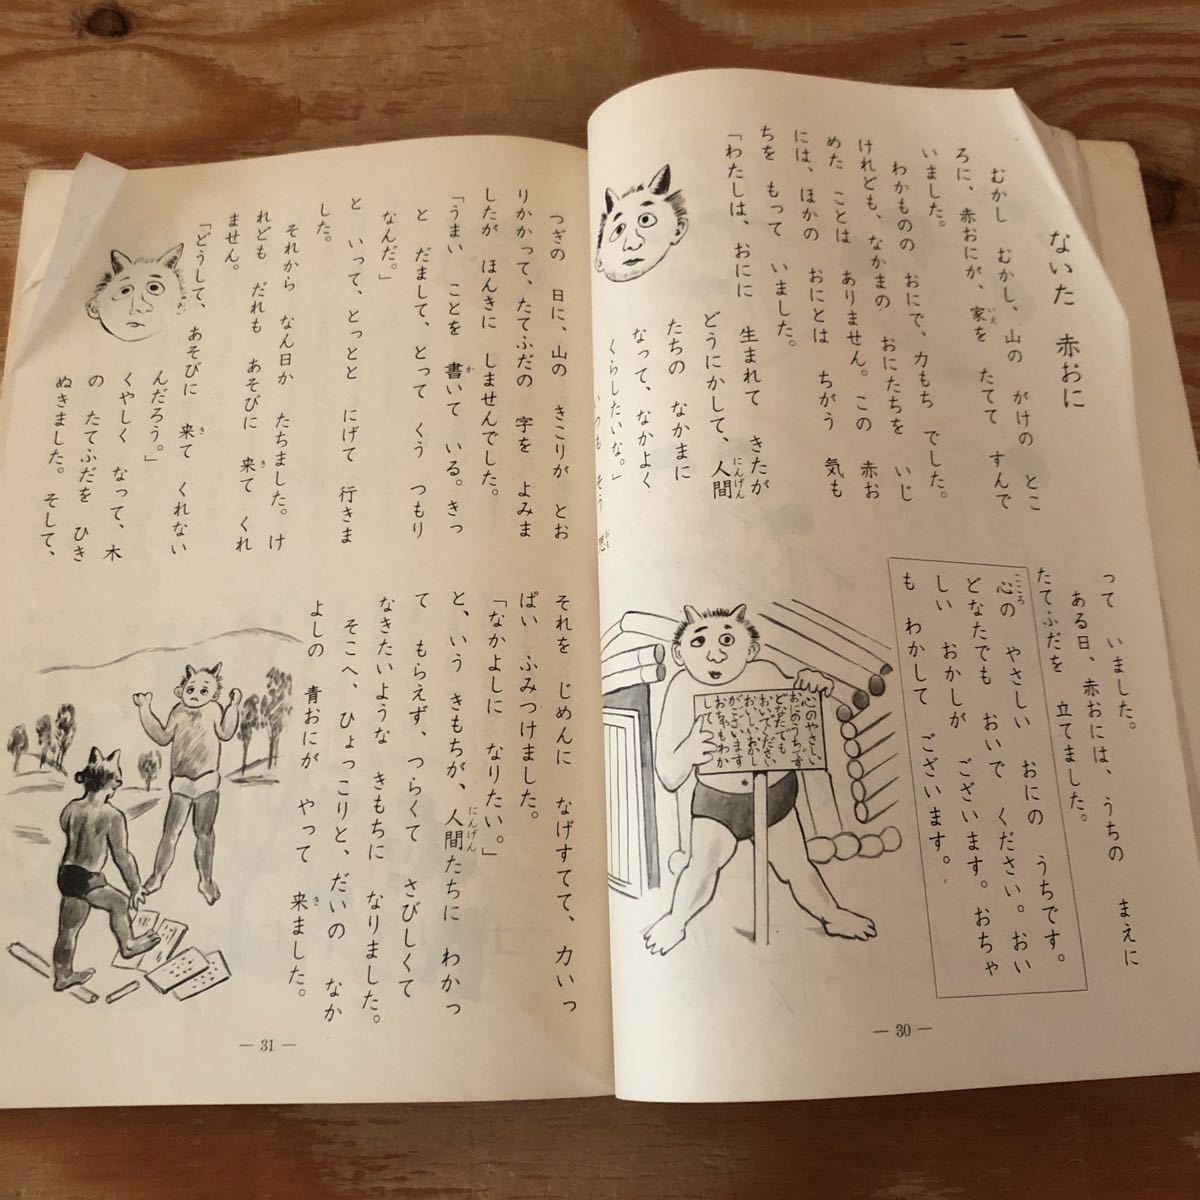 ないた 赤おに
むかし むかし、山の がけの とこ
ろに、赤おにが、家を たてて すんで
いました。
わかものの おにで、力もち でした。
けれども、なかまの おにたちを いじ
めた ことは ありません。この 赤お
には、ほかの おにとは ちがう 気も
ちを もって いました。
「わたしは、おにに 生まれて きたが
どうにかして、人間
たちの なかまに
なって、なかよく
くらしたいな。」
いつも そう 思
って いました。
ある日、赤おには、うちの まえに
たてふだを 立てました。
心の やさしい おにの うちです。
どなたでも おいで ください。おい
しい おかしが ございます。おちゃ
も わかして ございます。
心のやさしい
おにのうちです
どなたでも
おいでください
おいしいおかし
がございます
おちゃもわか
して
いえ
にんげん
おも
こころ
— 30 —
つぎの 日に、山の きこりが とお
りかかって、たてふだの 字を よみま
したが ほんきに しませんでした。
「うまい ことを 書いて いる。きっ
と だまして、とって くう つもり
なんだ。」
と いって、とっとと にげて 行きま
した。
それから なん日か たちました。け
れども だれも あそびに 来て くれ
ません。
「どうして、あそびに 来て くれない
んだろう。」
くやしく なって、木
の たてふだを ひき
ぬきました。そして、
それを じめんに なげすてて、力いっ
ぱい ふみつけました。
「なかよしに なりたい。」
と、いう きもちが、人間たちに わかっ
て もらえず、つらくて さびしくて
なきたいような きもちに なりました。
そこへ、ひょっこりと、だいの なか
よしの 青おにが やって 来ました。
か
き
き
にんげん
き
— 31 —